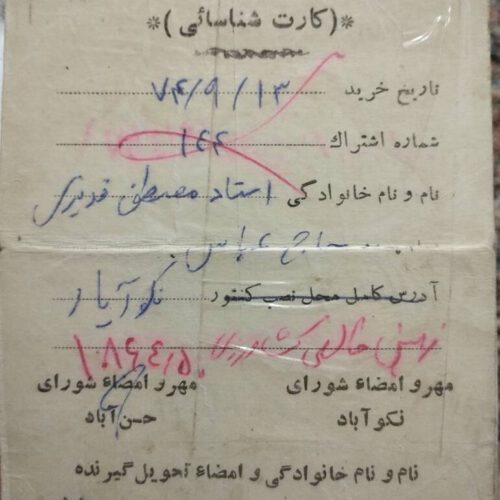 *(کارت شناسائی)*
تاریخ خرید ۷۴/۹/۱۳
شماره اشتراك ۱۴۴
نام و نام خانوادگی استاد مصطفی قدیری
عباس
آدرس کامل محل نصب کنتور نکوآباد
۱۰۸۶۴۱۵۰
مهر و امضاء شورای نکوآباد
مهر و امضاء شورای حسن‌آباد
نام و نام خانوادگی و امضاء تحویل گیرنده